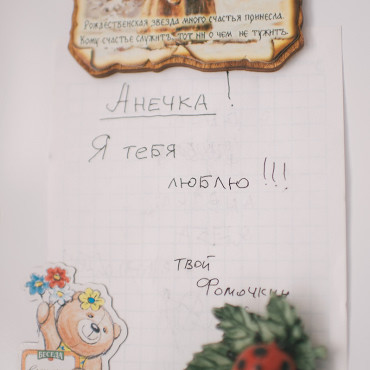 Рождественская звезда много счастья принесла.
Кому счастье служитъ, тот ни о чем не тужитъ.
Анечка!
Я тебя
люблю!!!
твой
Фомочкин
ВЕСЕЛА